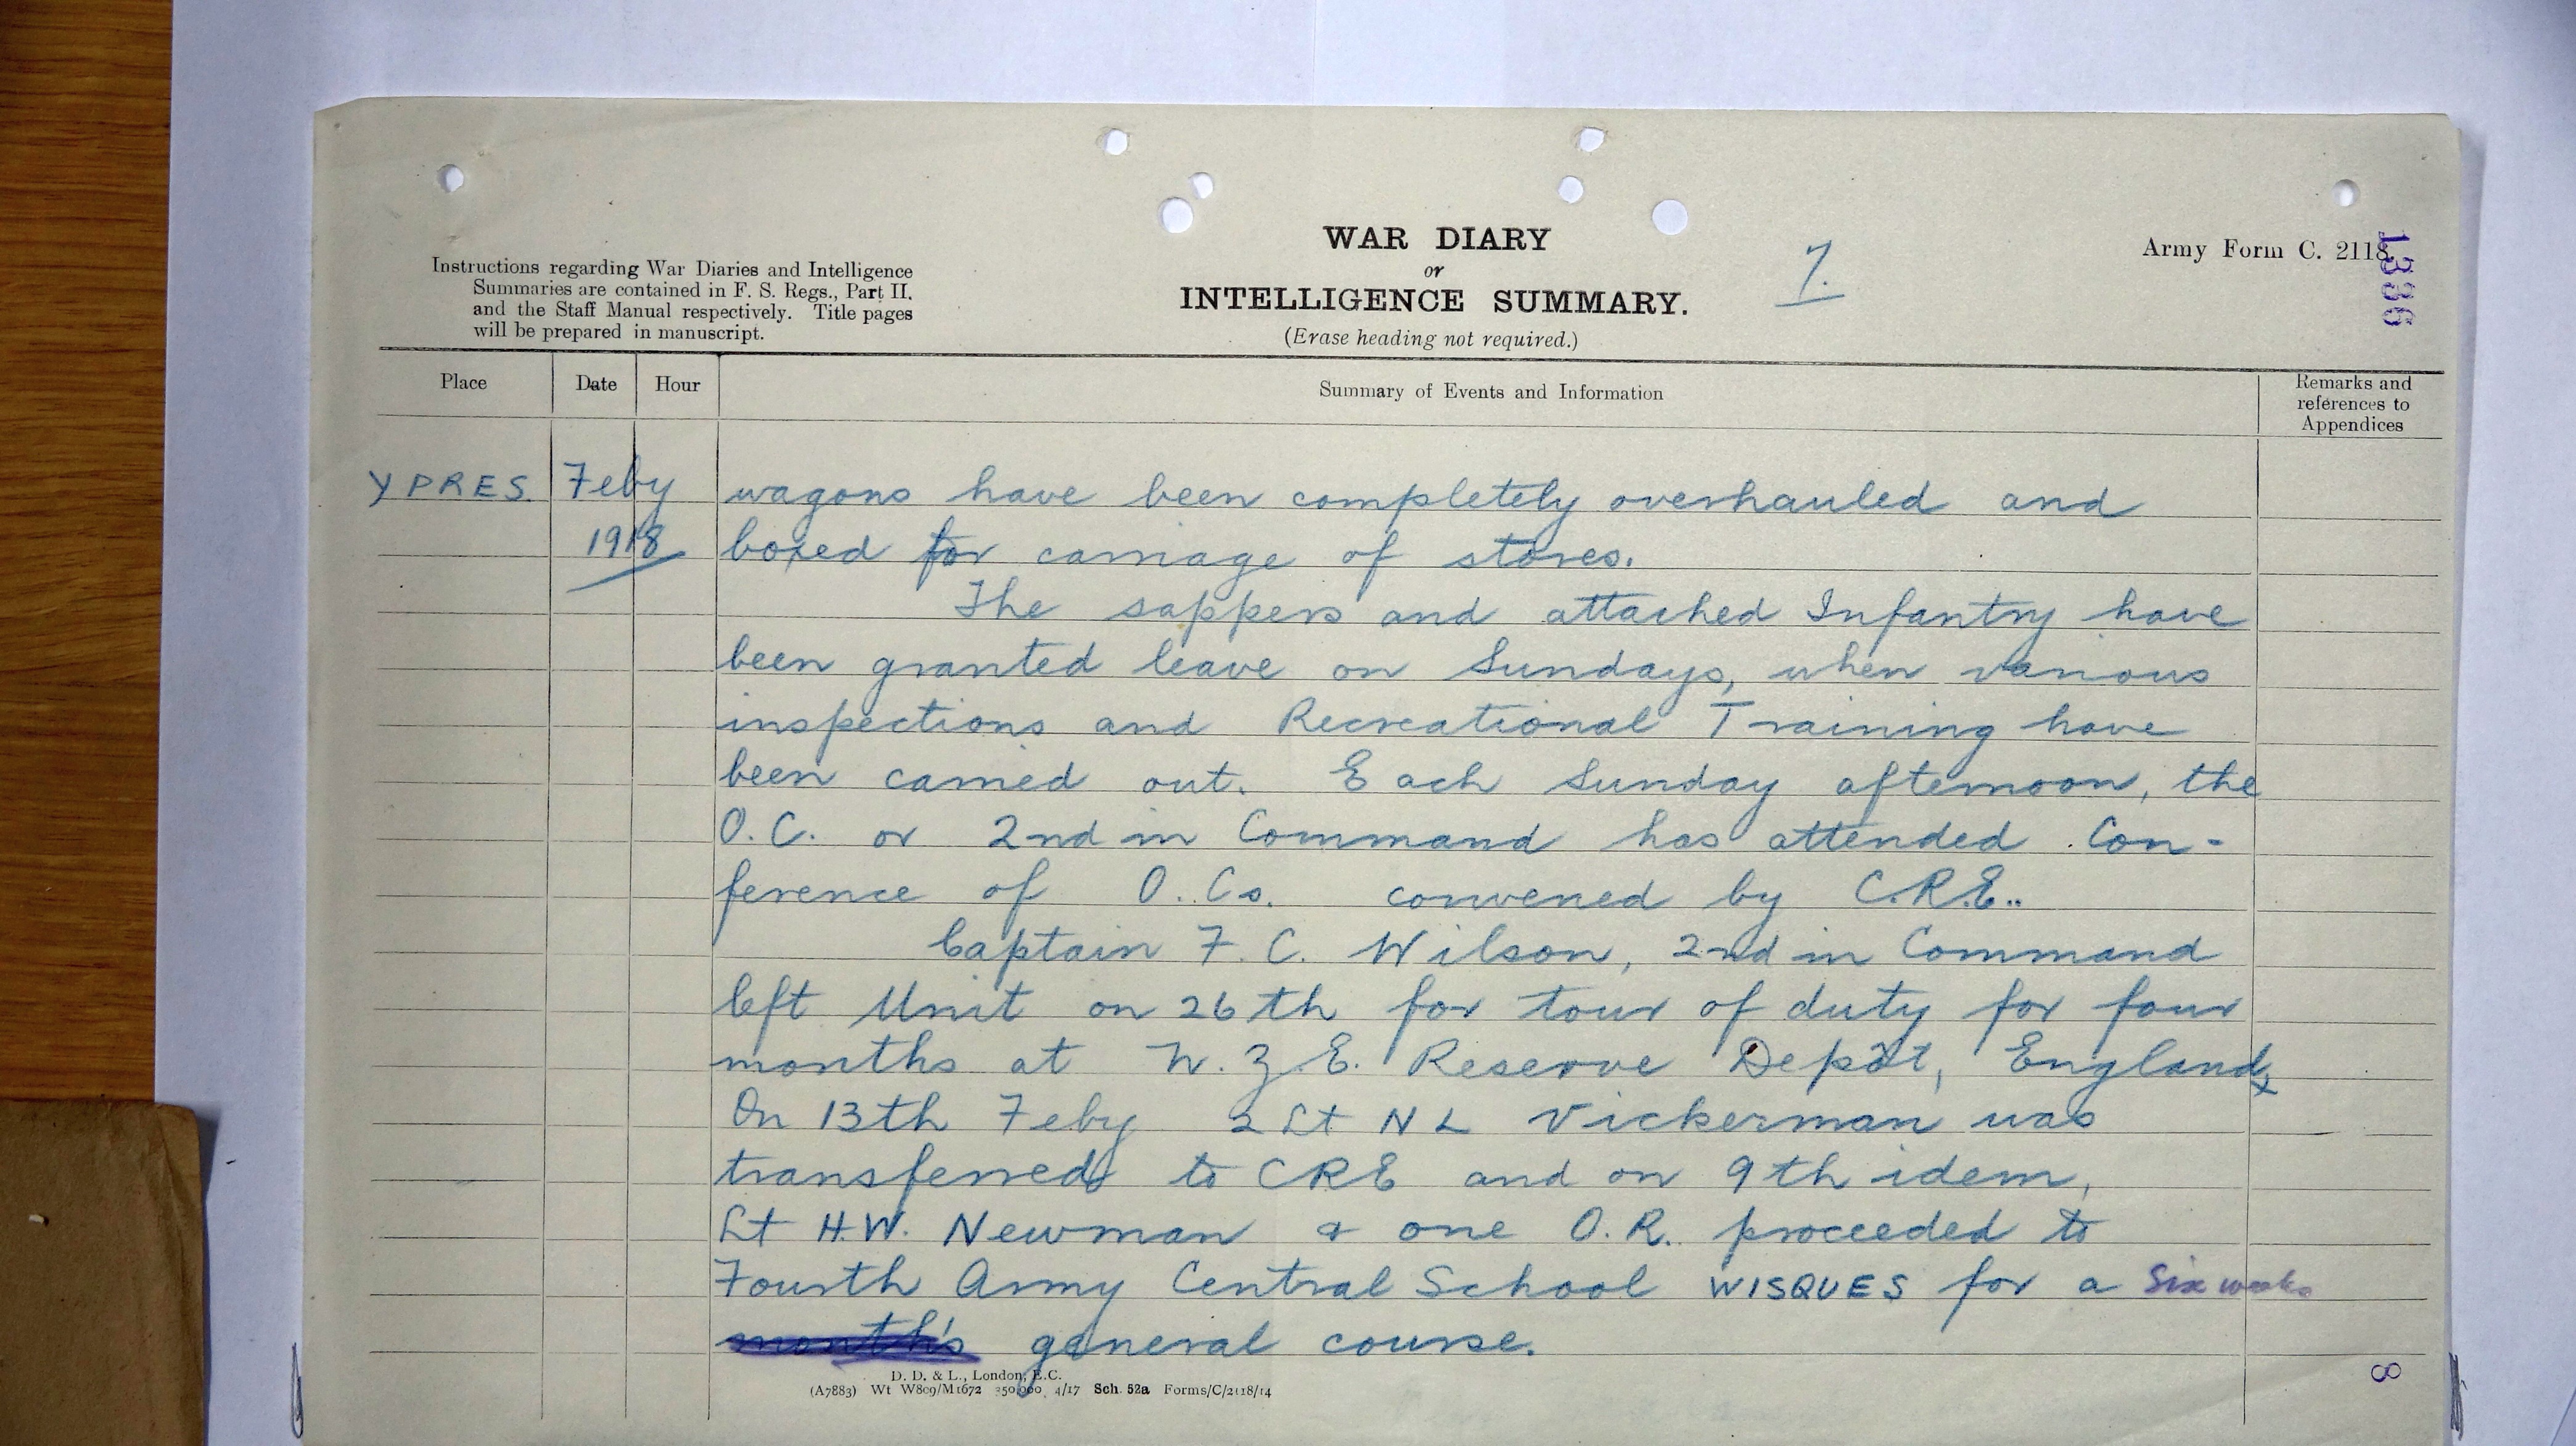 WAR DIARY
or
INTELLIGENCE SUMMARY.
(Erase heading not required.)
7.
Army Form C. 2118.
1336
Instructions regarding War Diaries and Intelligence
Summaries are contained in F. S. Regs., Part II.
and the Staff Manual respectively. Title pages
will be prepared in manuscript.
Place Date Hour Summary of Events and Information Remarks and
references to
Appendices
YPRES. Feby wagons have been completely overhauled and
1918 boxed for carriage of stores.
The sappers and attached Infantry have
been granted leave on Sundays, when various
inspections and Recreational Training have
been carried out. Each Sunday afternoon, the
O.C. or 2nd in Command has attended Con-
ference of O.Cs. convened by C.R.E..
Captain F. C. Wilson, 2nd in Command
left Unit on 26th for tour of duty for four
months at N.Z.E. Reserve Depôt, England
On 13th Feby 2 Lt N L Vickerman was
transferred to CRE and on 9th idem,
Lt H.W. Newman & one O.R. proceeded to
Fourth Army Central School WISQUES for a Six weeks
month's general course.
D. D. & L., London, E.C.
(A7883) Wt W809/M1672 350,000 4/17 Sch. 52a Forms/C/2118/14
8